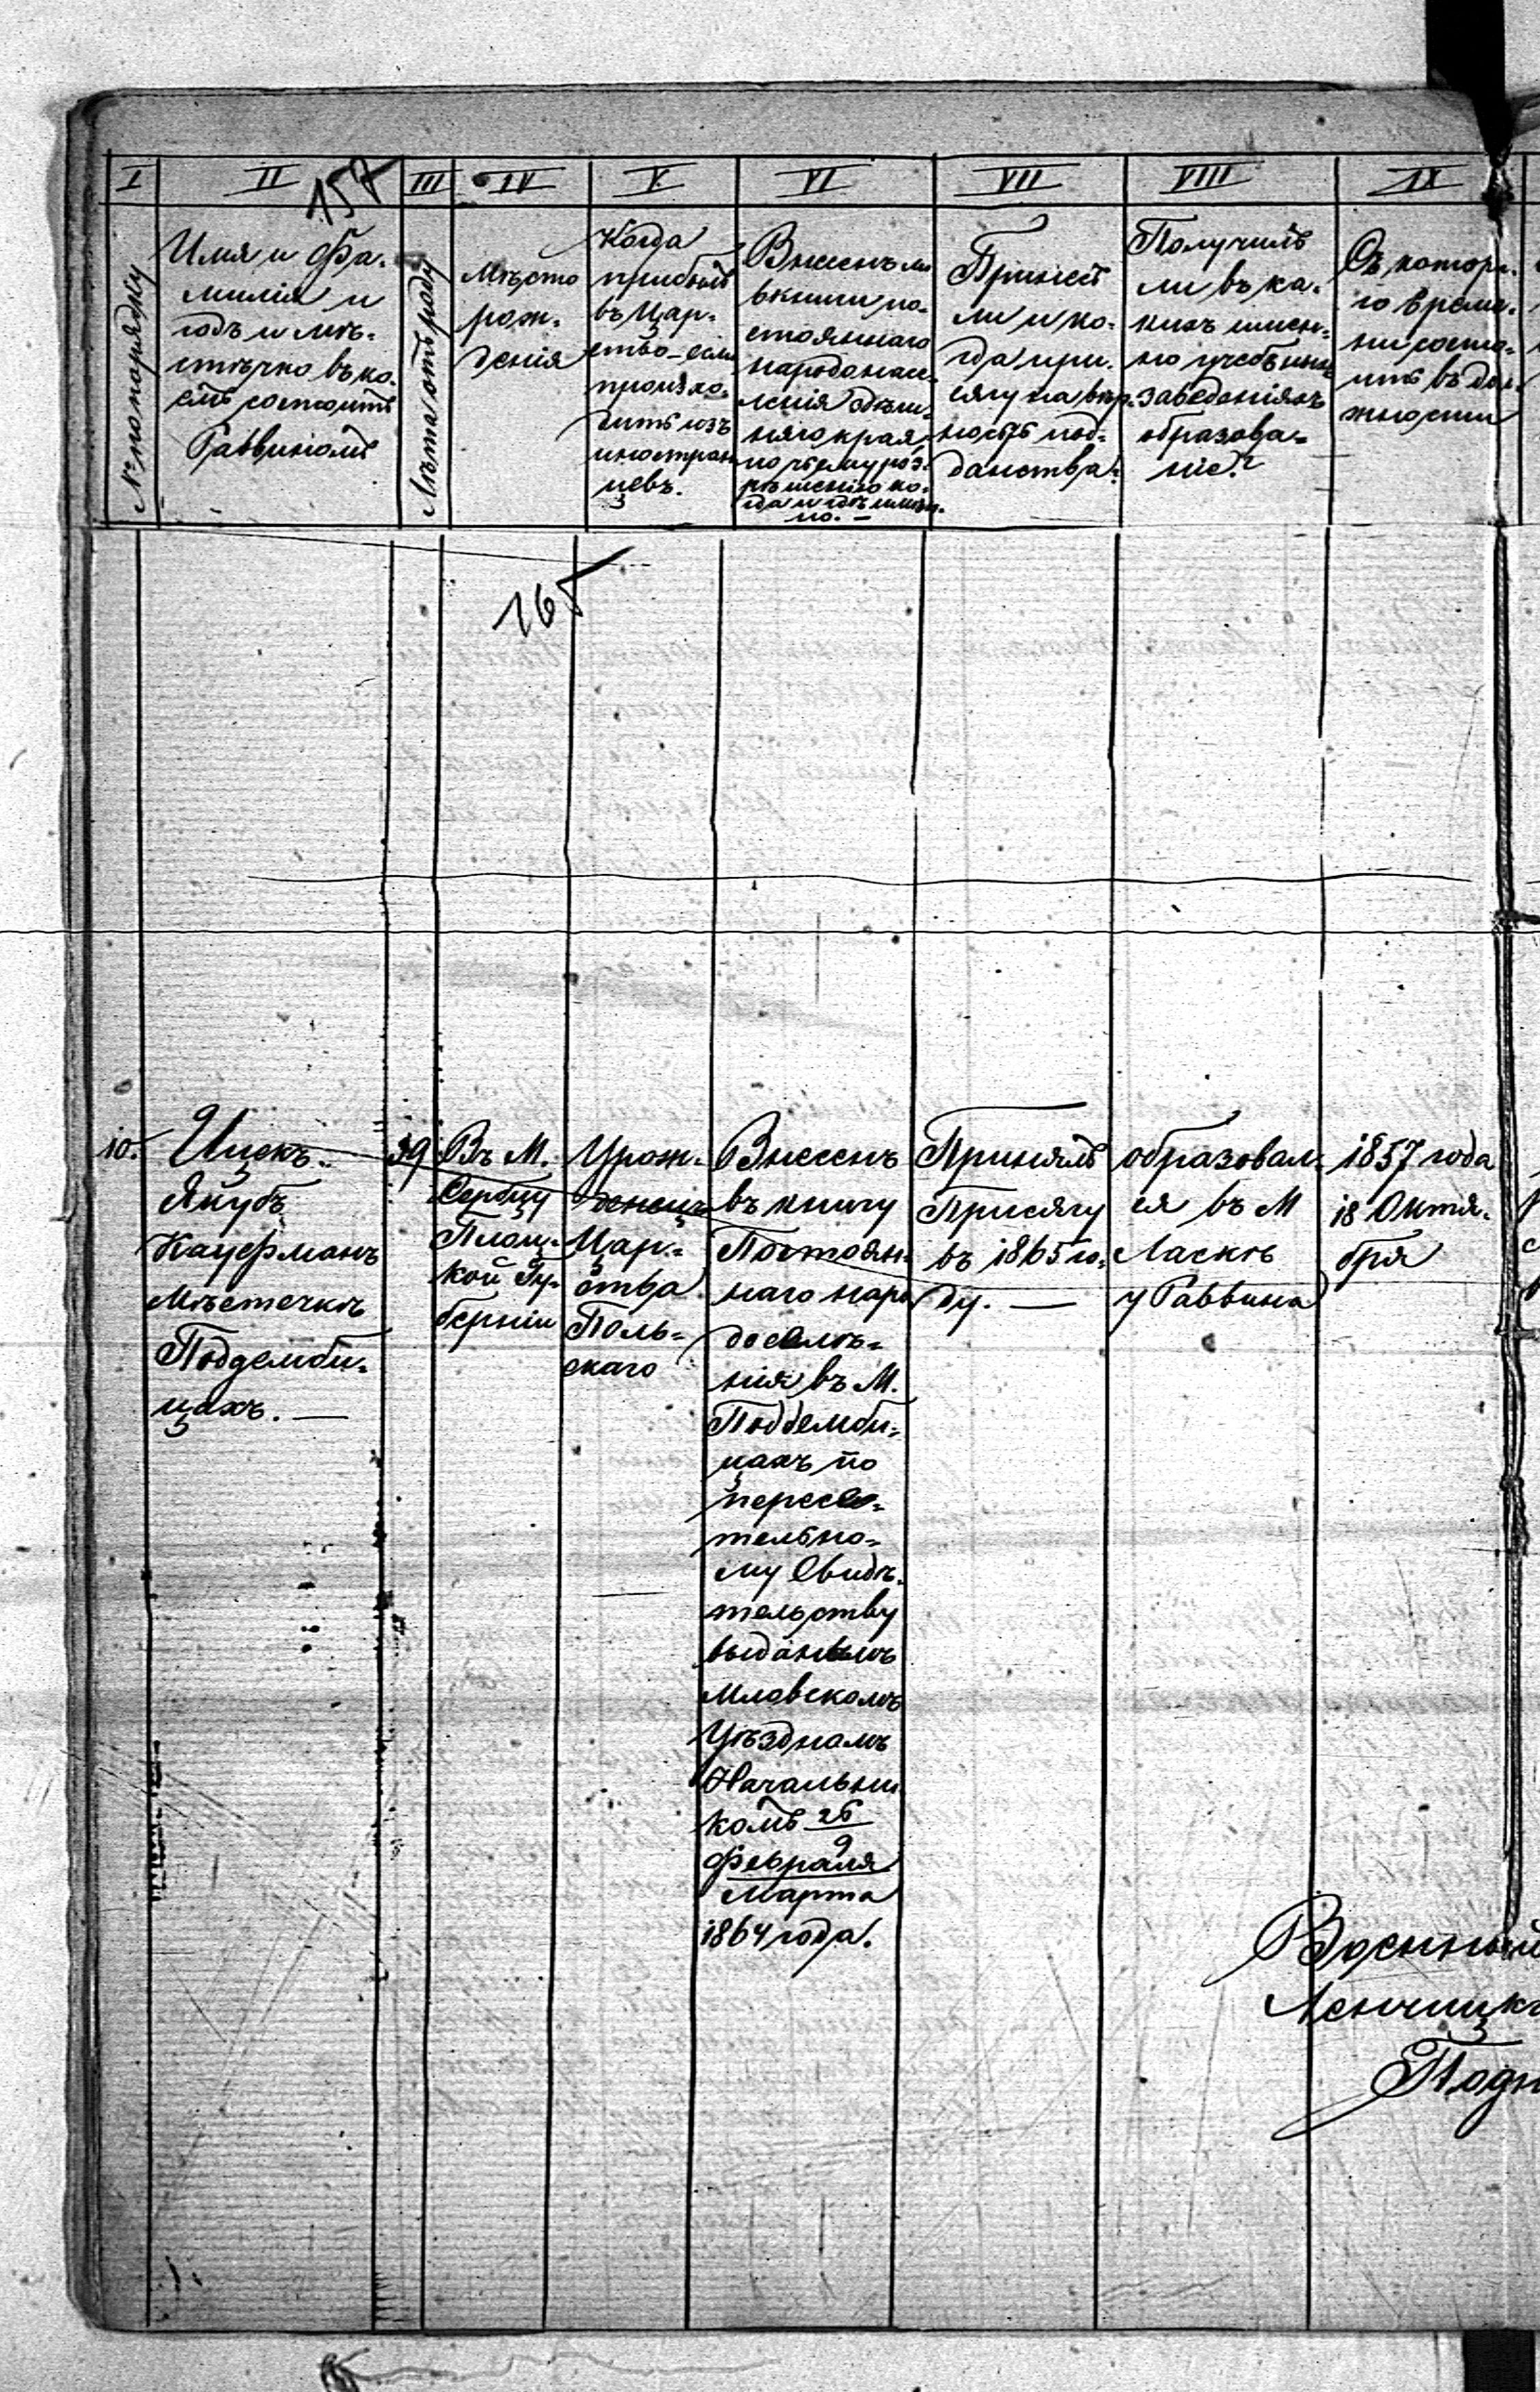 I
II
157
III
IV
V
VI
VII
VIII
IX
№ по порядку
Имя и Фа-
милія и
годъ и мѣ-
стѣчко въ ко-
емъ состоитъ
Раввиномъ
Лѣта отъ роду
Мѣсто
рож-
денія
Когда
прибылъ
въ Цар-
ство если
происхо-
дитъ изъ
иностран
цевъ.
Внесенъ ли
в книги по-
стояннаго
народонасе-
ленія здѣш-
няго края,
по чьему раз-
рѣшенію ко-
гда и гдѣ имен-
но. —
Принесъ
ли и ко-
гда при-
сягу на вѣр-
ность под-
данства?
Получилъ
ли въ ка-
кихъ имен-
но учебныхъ
заведеніяхъ
образова-
ніе?
Съ котора-
го време-
ни состо-
итъ въ дол-
жности
165
10.
Ицекъ-
Якубъ
Кауфманъ
Мѣстечкѣ
Поддемби-
цахъ. —
39
Въ М.
Сербцу
Плоц-
кой Гу-
берніи
Урож-
денецъ
Цар-
ства
Поль-
скаго
Внесенъ
въ книгу
Постоян-
наго наро
доселѣ-
нія въ М.
Поддемби-
цахъ по
пересе-
тельно-
му Свидѣ-
тельству
выданымъ
Млавскомъ
Уѣзднамъ
Начальни
комъ 26/9
Февраля
Марта
1864 года.
Принялъ
Присягу
въ 1865 го-
ду. —
образовал-
ся въ М
Ласкѣ
у Раввина
1857 года
18 Октя-
бря
Военный
Ленчицк